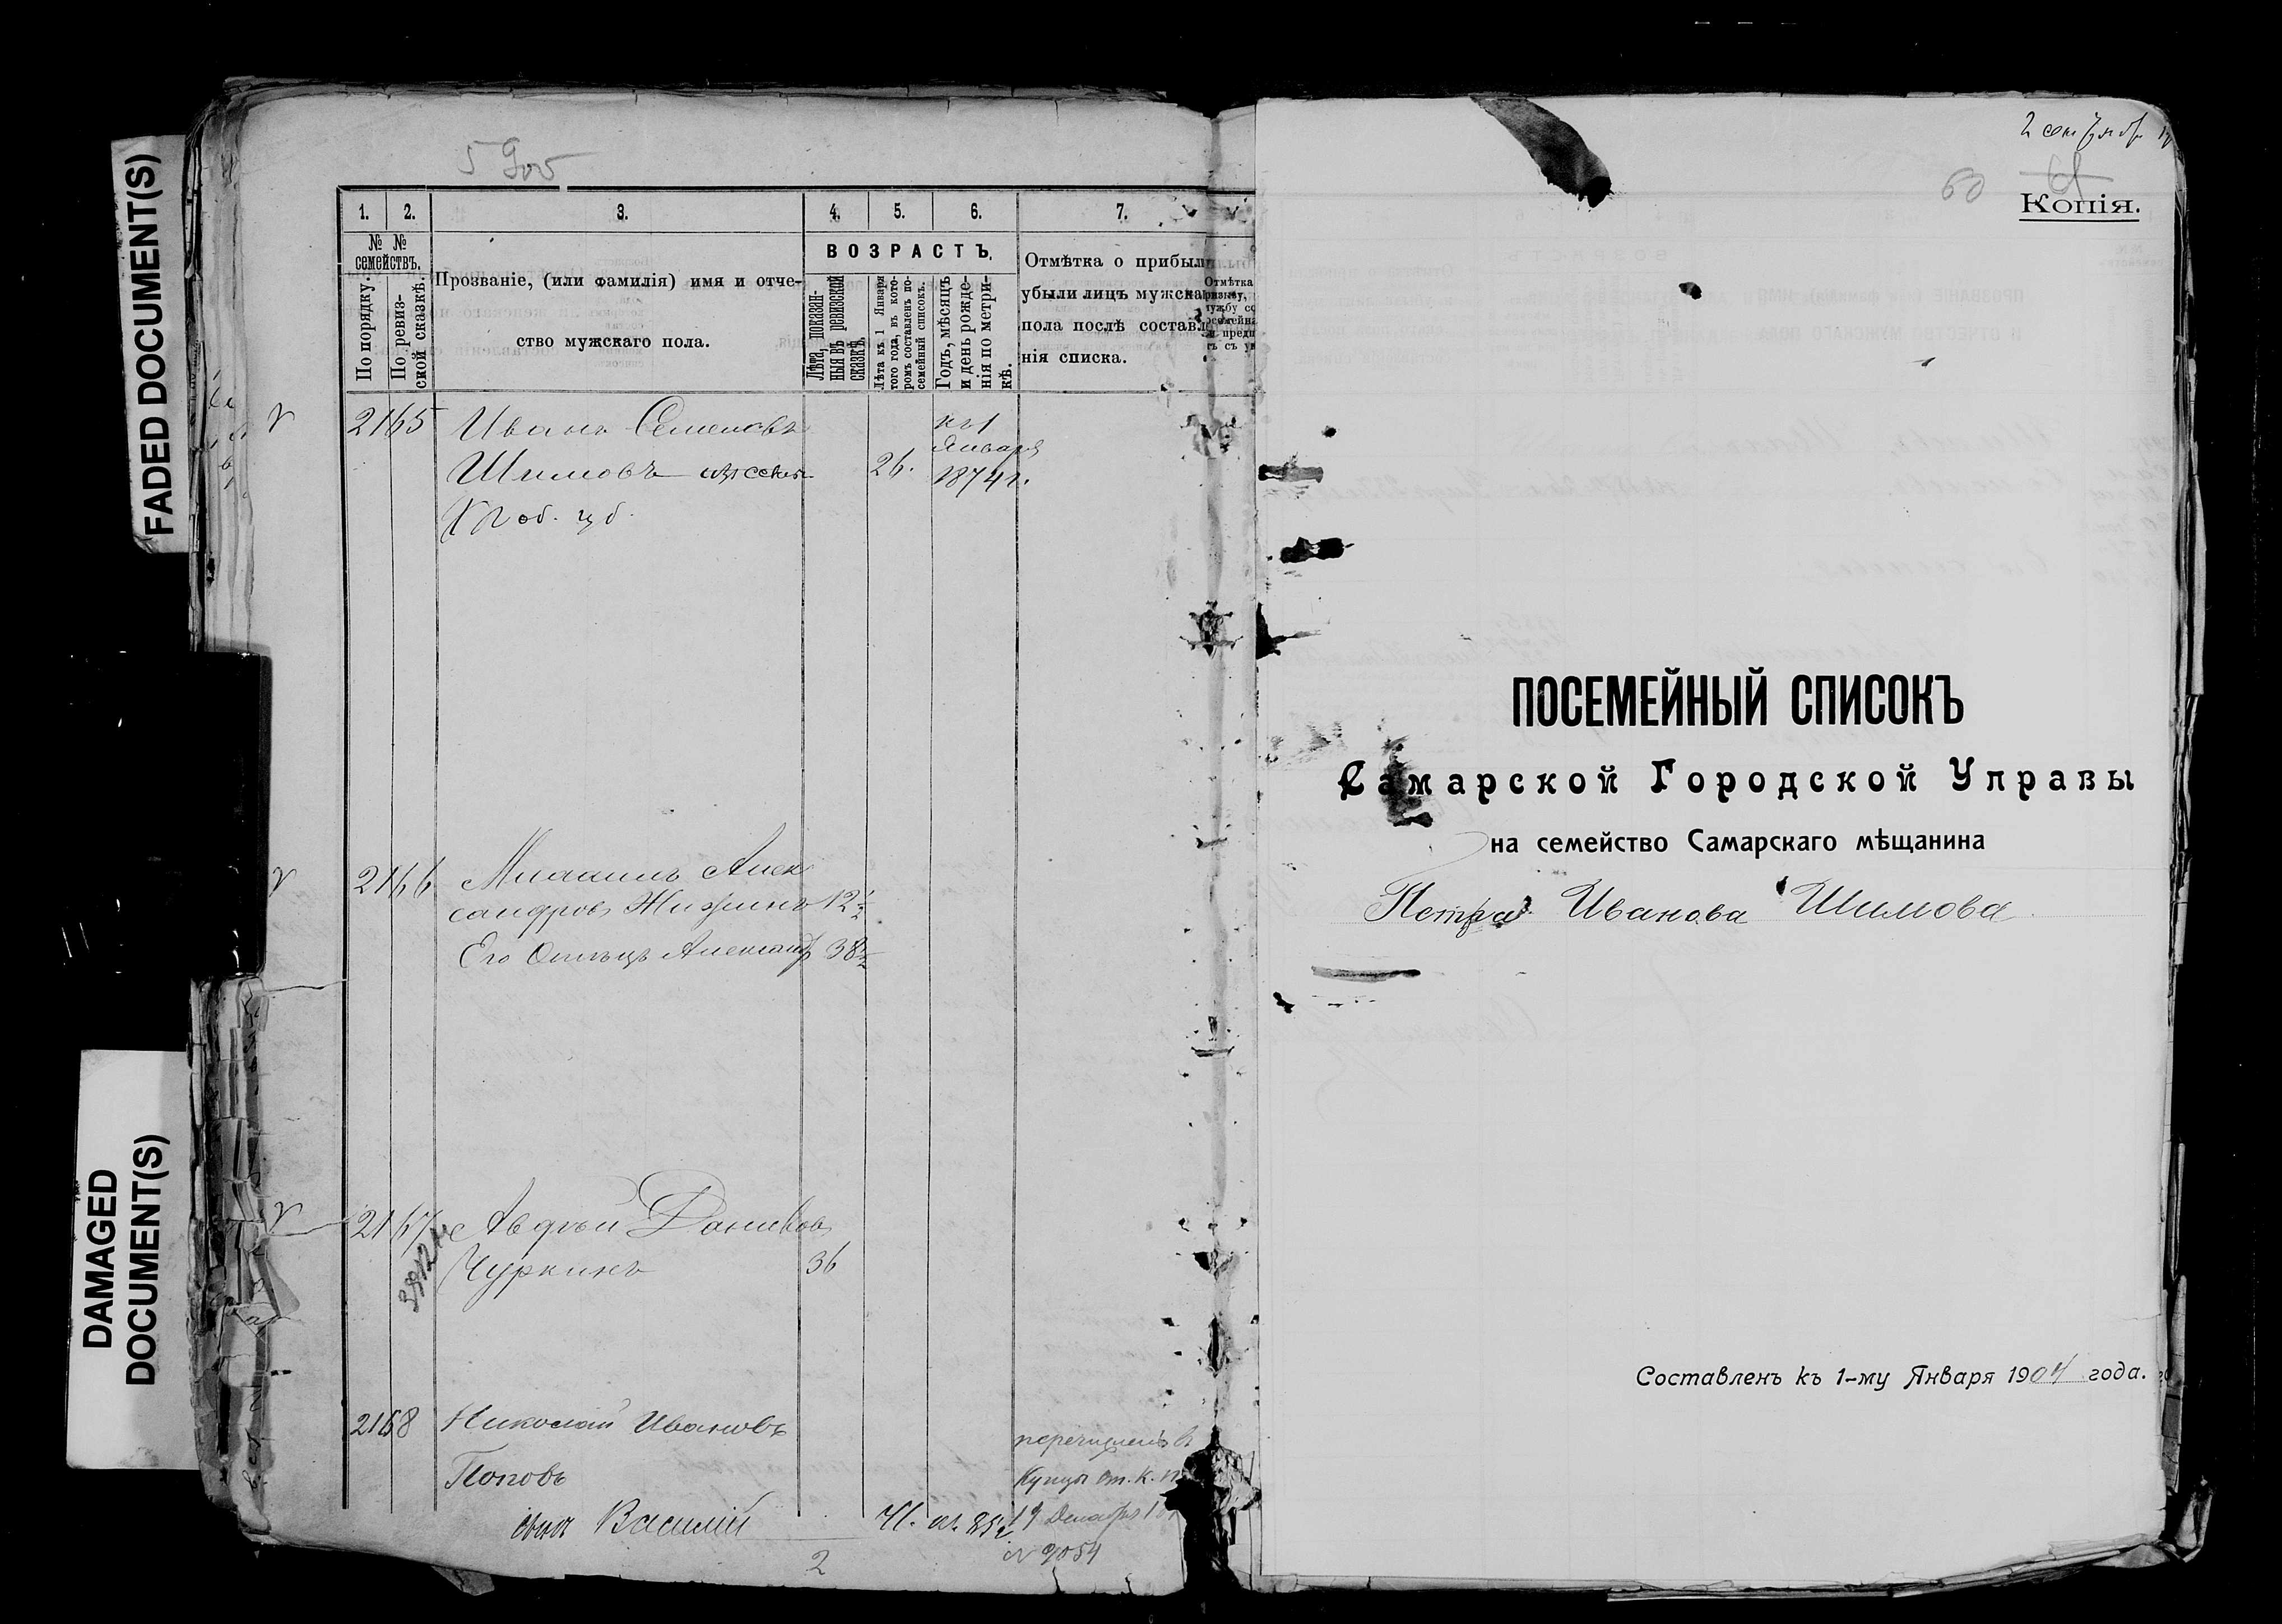 FADED DOCUMENT(S)
DAMAGED
DOCUMENT(S)
1. 2. 3. 4. 5. 6. 7.
№ №
семействъ.
По порядку.
По ревиз-
ской сказкѣ.
Прозваніе, (или фамилія) имя и отче-
ство мужскаго пола.
ВОЗРАСТЪ.
Лѣта, показан-
ныя въ ревизской
сказкѣ.
Лѣта къ 1 Января
того года, въ кото-
ромъ составленъ по-
семейный списокъ.
Годъ, мѣсяцъ
и день рожде-
нія по метри-
кѣ.
Отмѣтка о прибыли
убыли лицъ мужска
пола послѣ составл
нія списка.
Отмѣтка
2165 Иванъ Семеновъ
Шимовъ 26.
къ 1
Января
1874 г.
2166 Михаилъ Алек
сандровъ 12 1/2
Его Отецъ Александр 38 1/2
2167 Авдѣй
Чуркинъ 36
2168 Николай Ивановъ
Поповъ
сынъ Василій
перечисленъ в
Купцы
19 Декабря
№ 9054
2
60 61
Копія.
ПОСЕМЕЙНЫЙ СПИСОКЪ
Самарской Городской Управы
на семейство Самарскаго мѣщанина
Петра Иванова Шимова
Составленъ къ 1-му Января 1904 года.